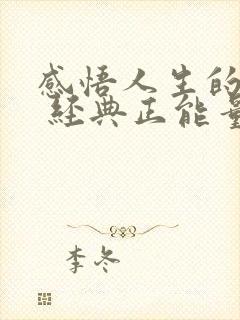 感悟人生的
经典正能量
李冬